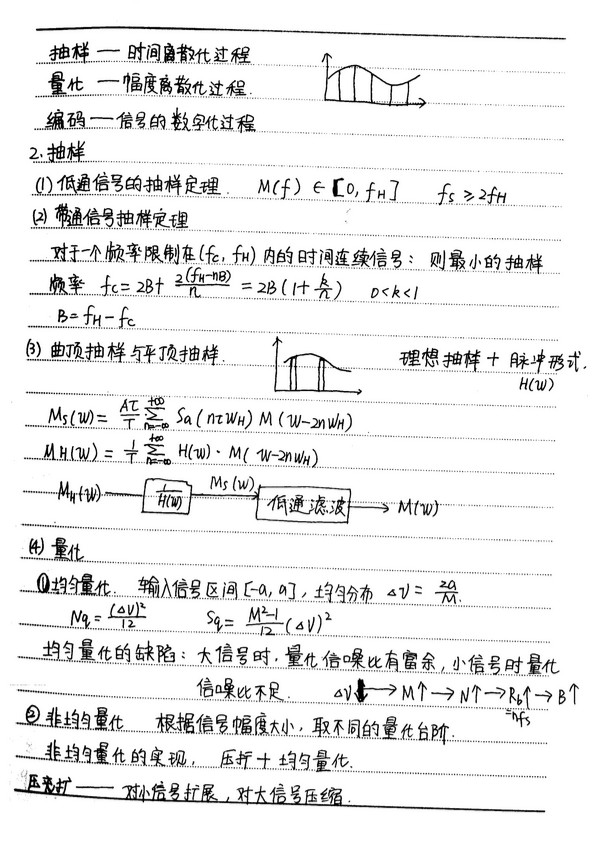 抽样 — 时间离散化过程
量化 — 幅度离散化过程.
编码 — 信号的数字化过程
2. 抽样
(1) 低通信号的抽样定理. M(f) ∈ [0, fH] fs ≥ 2fH
(2) 带通信号抽样定理
对于一个频率限制在(fc, fH) 内的时间连续信号: 则最小的抽样
频率 fc = 2B + 2(fH-nB)/n = 2B (1 + k/n) 0<k<1
B = fH - fc
(3) 曲顶抽样与平顶抽样. 理想抽样 + 脉冲形式.
H(w)
Ms(w) = Aτ/T Σ(n=-∞→+∞) Sa(nτwH) M(w-2nwH)
MH(w) = 1/T Σ(n=-∞→+∞) H(w)·M(w-2nwH)
MH(w) — 1/H(w) — Ms(w) → 低通滤波 → M(w)
(4) 量化
①均匀量化. 输入信号区间 [-a, a], 均匀分布 ΔV = 2a/M.
Nq = (ΔV)²/12 Sq = M²-1/12 (ΔV)²
均匀量化的缺陷: 大信号时, 量化信噪比有富余, 小信号时量化
信噪比不足. ΔV↓ → M↑ → N↑ → Rb↑ → B↑
=nfs
② 非均匀量化 根据信号幅度大小, 取不同的量化台阶.
非均匀量化的实现, 压扩 + 均匀量化.
—— 对小信号扩展, 对大信号压缩.